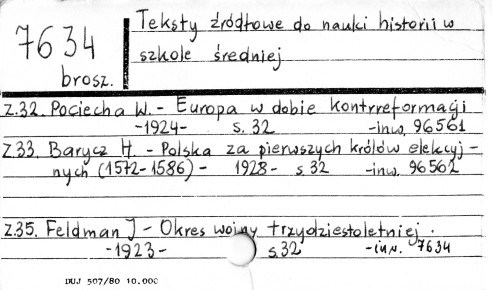 7634
brosz.
Teksty źródłowe do nauki historii w
szkole średniej
Z.32. Pociecha W. - Europa w dobie kontrreformacji
-1924- s. 32 -inw. 96561
Z.33. Barycz H. - Polska za pierwszych królów elekcyj-
nych (1572-1586) - 1928- s 32 -inw. 96562
Z.35. Feldman J - Okres wojny trzydziestoletniej.
-1923- s 32 -inw. 7634
DUJ 507/80 10.000